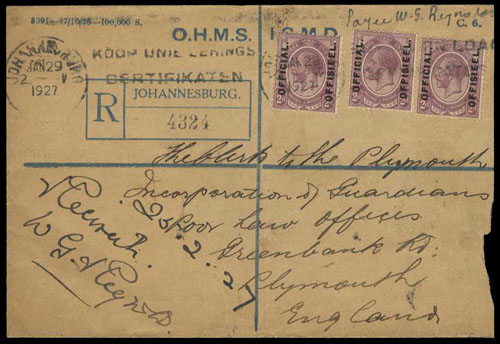 8301—27/10/26—100,000 S.
O.H.M.S. I.S.M.D.
C. 6.
Payee W. G. Reynolds
JOHANNESBURG
JAN 29
1927
KOOP UNIE LENINGS
CERTIFIKATEN
R
JOHANNESBURG.
4324
OFFICIAL. OFFISIEEL.
OFFICIAL. OFFISIEEL.
OFFICIAL. OFFISIEEL.
The Clerk to the Plymouth
Incorporation of Guardians
Poor Law Offices
Greenbank Rd.
Plymouth
England
25.2.27
W G Reynolds